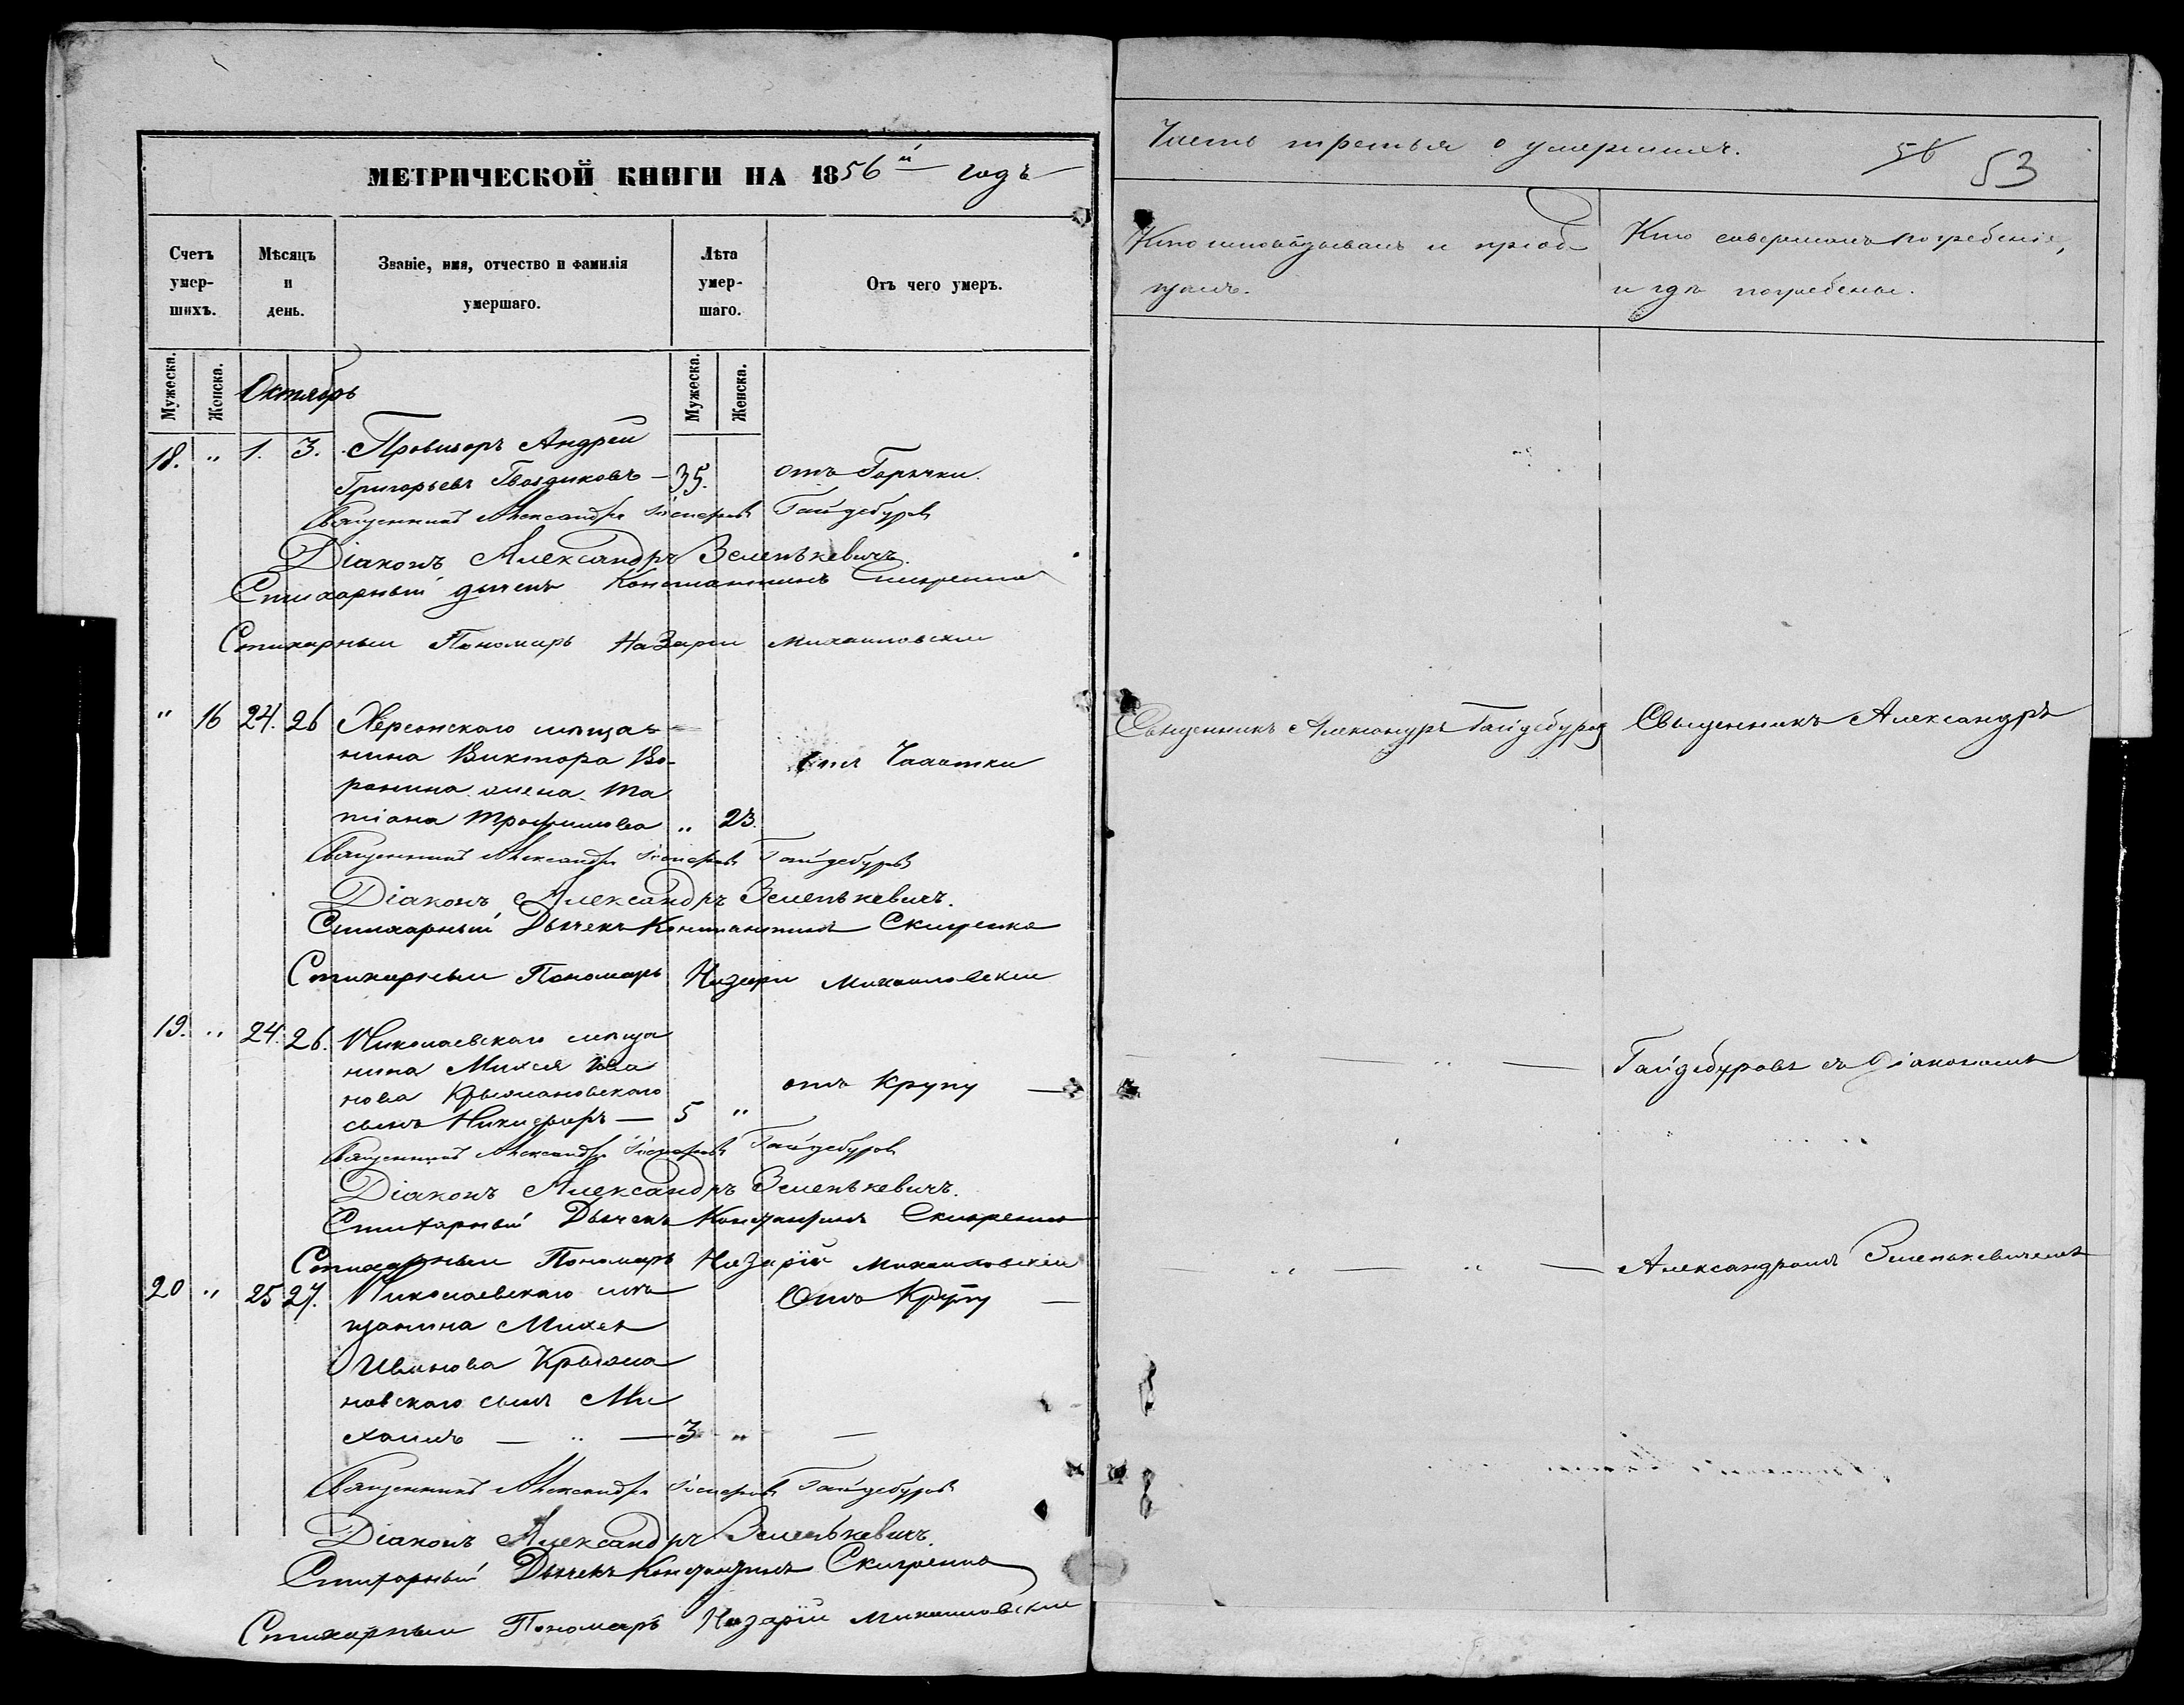 МЕТРИЧЕСКОЙ КНИГИ НА 1856й годъ
Счетъ умер-шихъ.
Мѣсяцъ и день.
Званіе, имя, отчество и фамилія умершаго.
Лѣта умер-шаго.
Отъ чего умеръ.
Мужеска.
Женска.
Мужеска.
Женска.
Октябрь
18. " 1. 3. Провизоръ Андрей
Григорьевъ Гвоздиковъ — 35. отъ Горячки.
Священникъ Александръ Гайдебуровъ
Діаконъ Александръ Зеленькевичъ.
Стихарный дьячекъ Константинъ
Стихарный Пономарь Назарій Михайловскій
" 16 24. 26 Херсонскаго мѣща-
нина Виктора Во-
ронина жена Та
тіана Трофимова " 23. отъ Чахотки
Священникъ Александръ Гайдебуровъ
Діаконъ Александръ Зеленькевичъ.
Стихарный Дьячекъ Константинъ
Стихарный Пономарь Назарій Михайловскій
19. " 24. 26. Николаевскаго мѣща
нина Михея Ива
нова Крыжановскаго
сынъ Никифоръ — 5 " отъ Крупу —
Священникъ Александръ Гайдебуровъ
Діаконъ Александръ Зеленькевичъ.
Стихарный Дьячекъ Константинъ
Стихарный Пономарь Назарій Михайловскій
20 " 25 27. Николаевскаго мѣ
щанина Михея
Иванова Крыжа
новскаго сынъ Ми
хаилъ — " — 3 " —
Отъ Крупу —
Священникъ Александръ Гайдебуровъ
Діаконъ Александръ Зеленькевичъ.
Стихарный Дьячекъ Константинъ
Стихарный Пономарь Назарій Михайловскій
Часть третья о умершихъ.
56 53
Кто исповѣдывалъ и пріоб-
щалъ.
Кто совершалъ погребеніе,
и гдѣ погребены.
Священникъ Александръ Гайдебуровъ
Священникъ Александръ
— " — Гайдебуровъ съ Діакономъ
— " — " — Александромъ Зеленькевичемъ